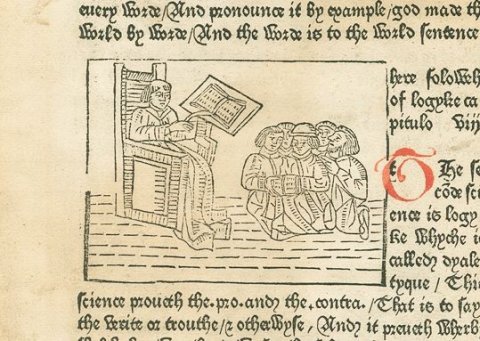 euery worde/And pronounce it by example/god made the
World by worde/And the worde is to the world sentence
here foloweh
of logyke ca
pitulo viij
THe se
cōde sci
ence is logy
ke whyche is
called dyale
tyque / This
science proueth the.pro.and the.contra./That is to say
the verite or trouthe/& otherwyse, And it preueth wherb